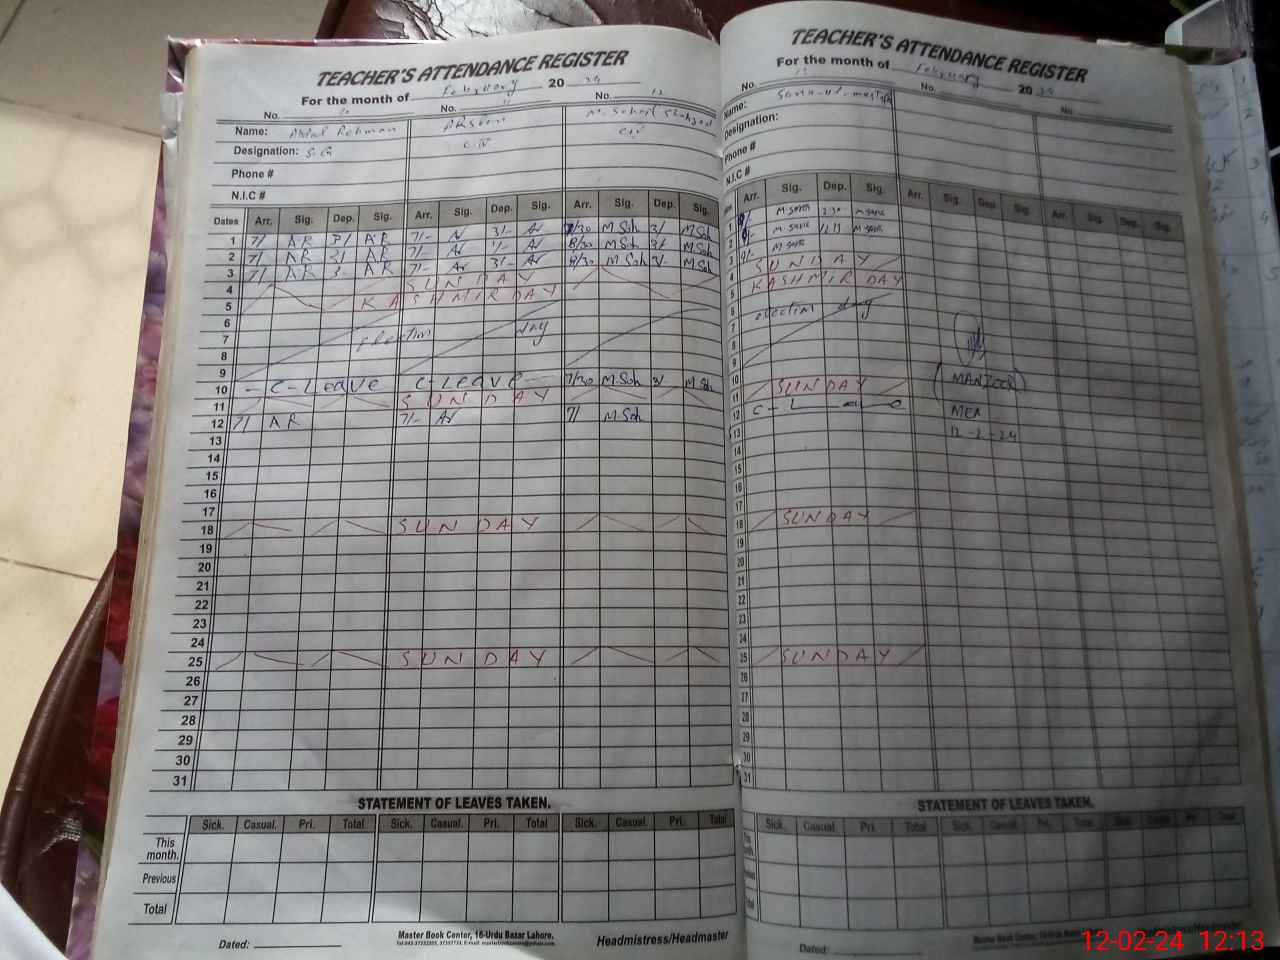 TEACHER'S ATTENDANCE REGISTER
For the month of February 20 24
No. No. 11 No. 12
Name: Abdul Rehman M. Sohail Shahzad
Designation: S.G C IV CIV
Phone #
N.I.C #
Dates Arr. Sig. Dep. Sig. Arr. Sig. Dep. Sig. Arr. Sig. Dep. Sig.
1 7/ AR 3/ AR 7/- Ar 3/- Ar 8/30 M Soh 3/ M Soh
2 7/ AR 3/ AR 7/- Ar 1/- Ar 8/30 M Soh 3/ M Soh
3 7/ AR 3- AR 7/- Ar 3/- Ar 8/30 M Soh 3/- M Soh
4 SUNDAY
5 KASHMIR DAY
6
7 election day
8
9
10 - C-Leave C-Leave - 7/30 M Soh 3/ M Soh
11 SUNDAY
12 7/ AR 7/- Ar 7/ M Soh
13
14
15
16
17
18 SUNDAY
19
20
21
22
23
24
25 SUNDAY
26
27
28
29
30
31
STATEMENT OF LEAVES TAKEN.
Sick. Casual. Pri. Total Sick. Casual. Pri. Total Sick. Casual. Pri. Total
This month.
Previous
Total
Master Book Center, 16-Urdu Bazar Lahore.
Dated: Headmistress/Headmaster
TEACHER'S ATTENDANCE REGISTER
For the month of February 20 24
No. No. No
Name:
Designation:
Phone #
N.I.C #
Arr. Sig. Dep. Sig. Arr. Sig. Dep Sig. Arr. Sig. Dep. Sig.
1 M Sana 2 30 M Sana
2 M Sana M Sana
3 9/- M Sana
4 SUNDAY
5 KASHMIR DAY
6
7 election day
8
9
10 (MANZOOR)
11 SUNDAY
12 MEA
13 12-2-24
14
15
16
17
18 SUNDAY
19
20
21
22
23
24
25 SUNDAY
26
27
28
29
30
31
STATEMENT OF LEAVES TAKEN.
Sick. Casual Pri. Total Sick. Casual Pri. Total Sick Casual Pri Total
Total
Dated:
12-02-24 12:13